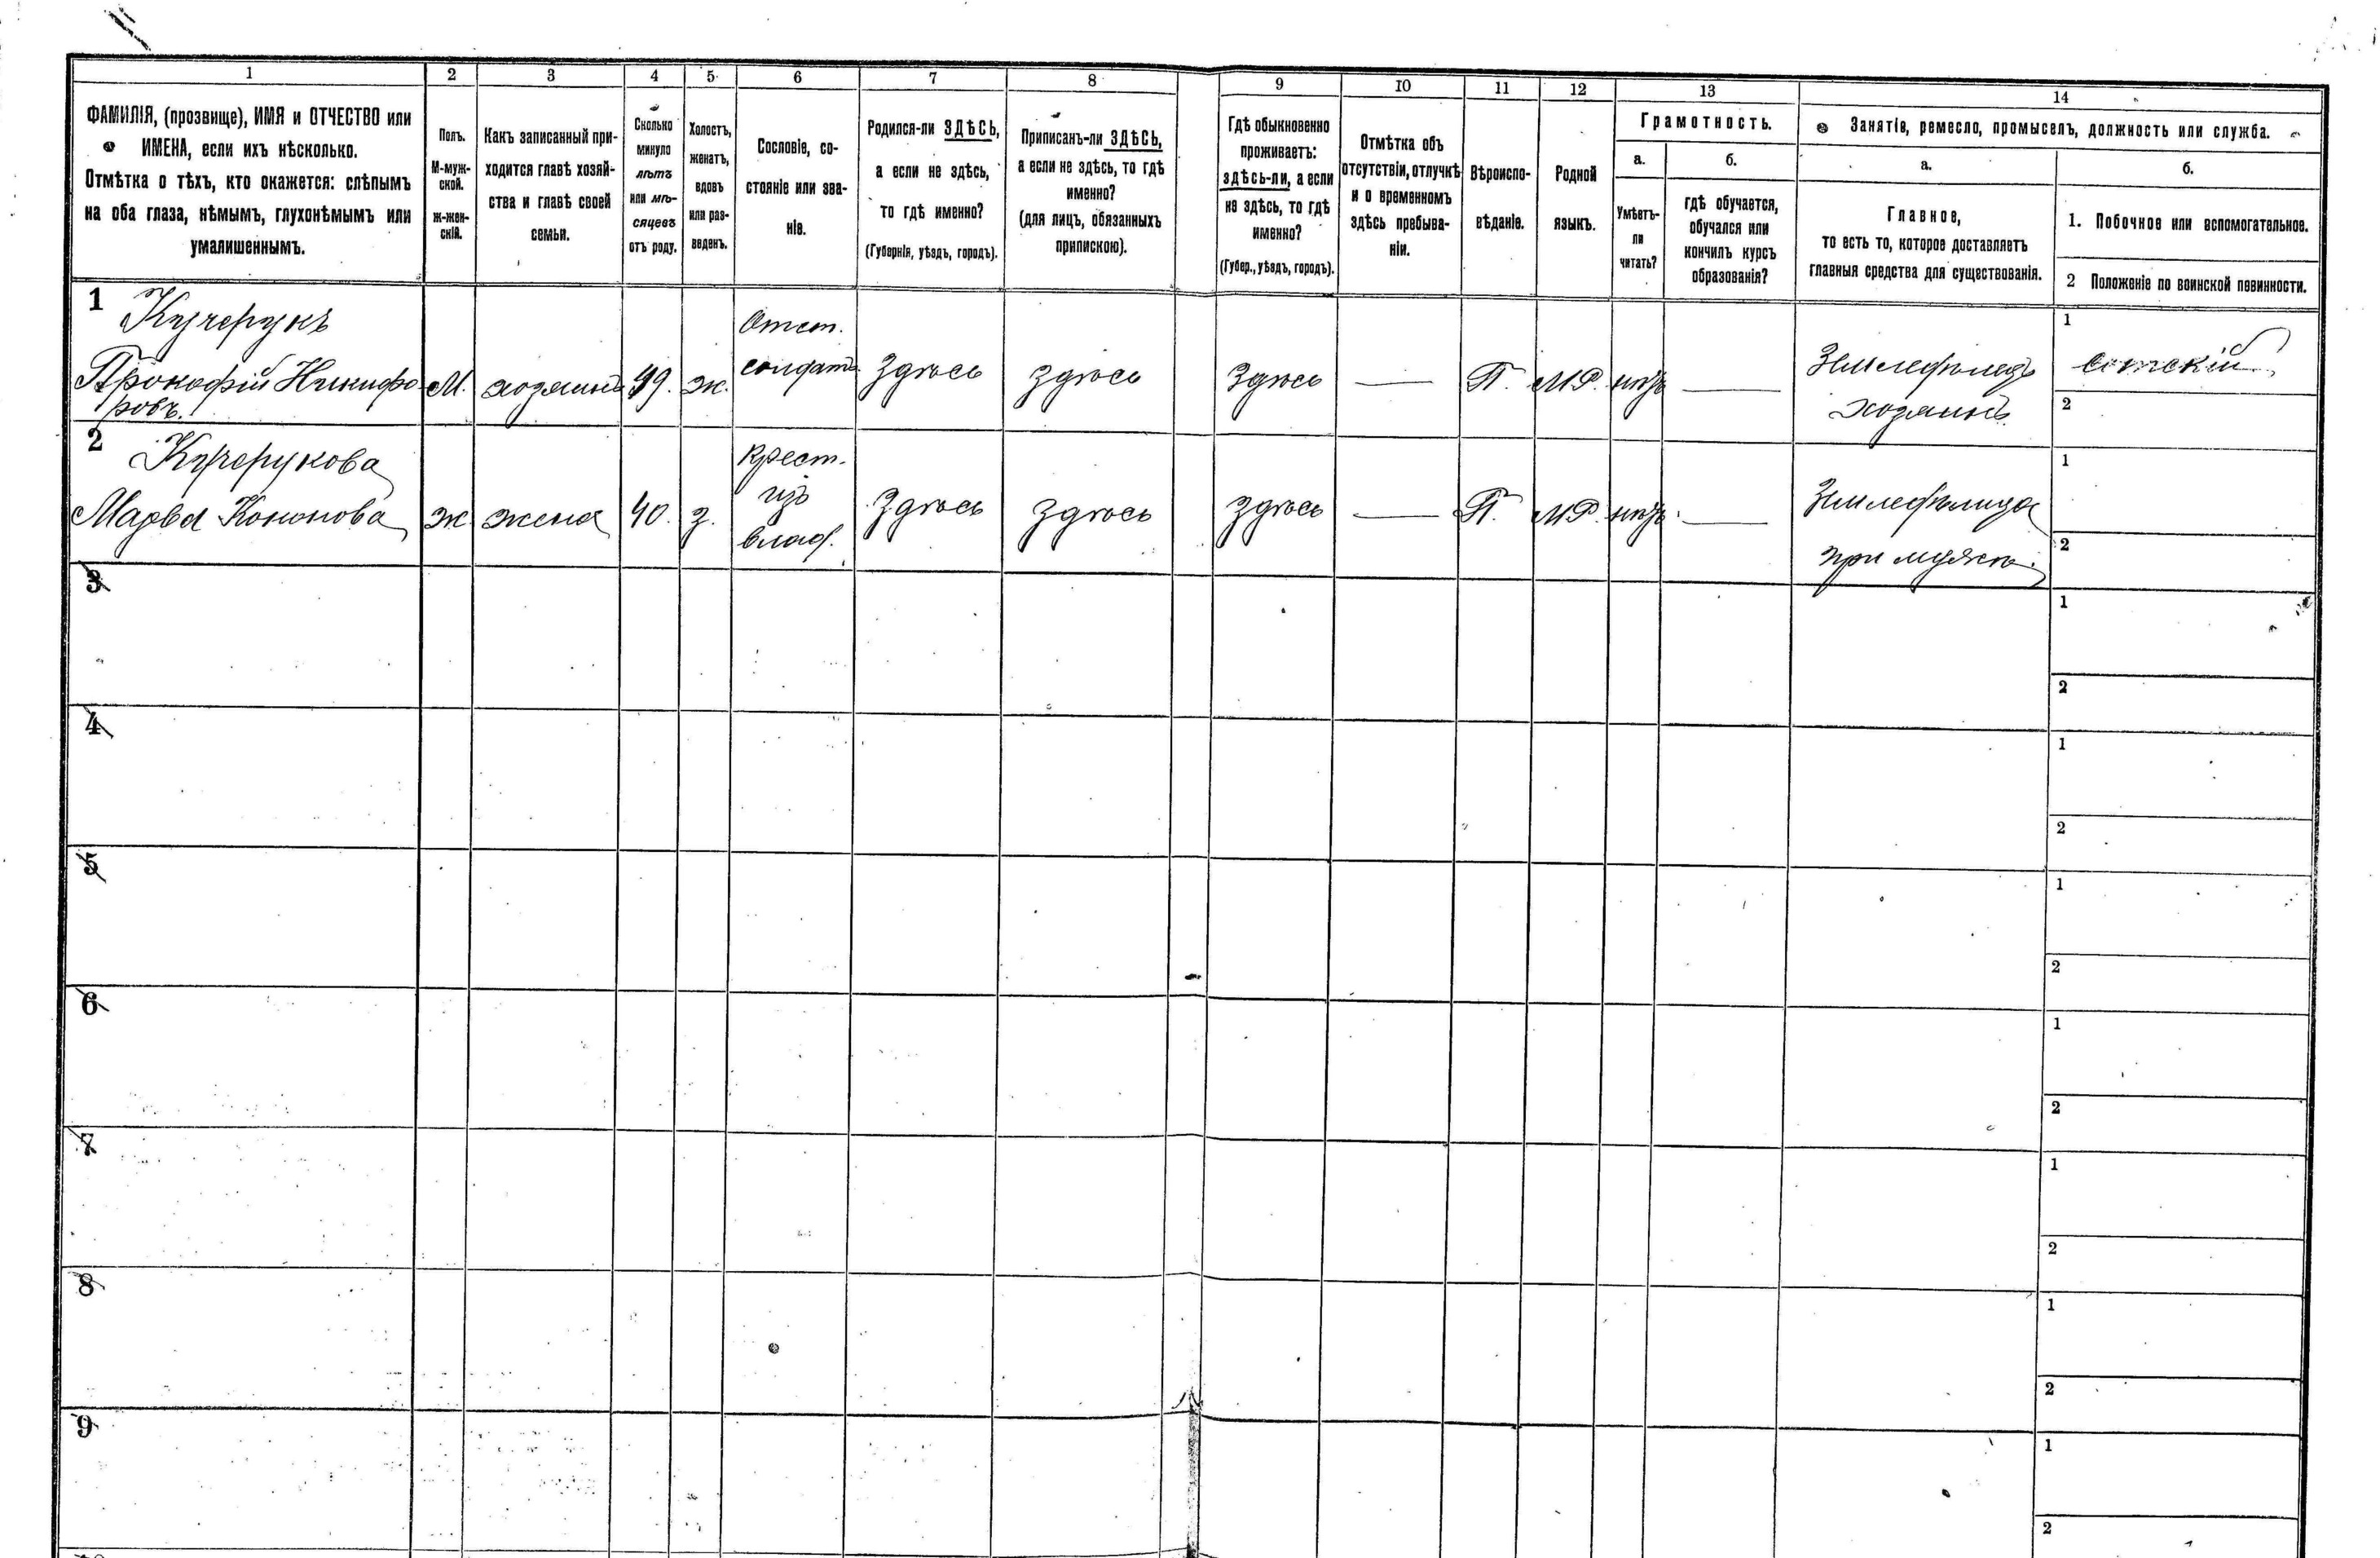 1 2 3 4 5 6 7 8 9 10 11 12 13 14
ФАМИЛІЯ, (прозвище), ИМЯ и ОТЧЕСТВО или
ИМЕНА, если ихъ нѣсколько.
Отмѣтка о тѣхъ, кто окажется: слѣпымъ
на оба глаза, нѣмымъ, глухонѣмымъ или
умалишеннымъ.
Полъ.
М-муж-
ской.
Ж-жен-
скій.
Какъ записанный при-
ходится главѣ хозяй-
ства и главѣ своей
семьи.
Сколько
минуло
лѣтъ
или мѣ-
сяцевъ
отъ роду.
Холостъ,
женатъ,
вдовъ
или раз-
веденъ.
Сословіе, со-
стояніе или зва-
ніе.
Родился-ли ЗДѢСЬ,
а если не здѣсь,
то гдѣ именно?
(Губернія, уѣздъ, городъ).
Приписанъ-ли ЗДѢСЬ,
а если не здѣсь, то гдѣ
именно?
(для лицъ, обязанныхъ
припискою).
Гдѣ обыкновенно
проживаетъ:
здѣсь-ли, а если
не здѣсь, то гдѣ
именно?
(Губер., уѣздъ, городъ).
Отмѣтка объ
отсутствіи, отлучкѣ
и о временномъ
здѣсь пребыва-
ніи.
Вѣроиспо-
вѣданіе.
Родной
языкъ.
Грамотность.
а.
Умѣетъ-
ли
читать?
б.
гдѣ обучается,
обучался или
кончилъ курсъ
образованія?
Занятіе, ремесло, промыселъ, должность или служба.
а.
Главное,
то есть то, которое доставляетъ
главныя средства для существованія.
б.
1. Побочное или вспомогательное.
2 Положеніе по воинской повинности.
1
Кучерукъ
Прокофій Никифо-
ровъ.
М.
хозяинъ
49.
ж.
Отст.
солдатъ
Здѣсь
здѣсь
Здѣсь
—
П.
МР.
нѣтъ
—
Земледѣлецъ
хозяинъ.
1
сотскій
2
2
Кучерукова
Марѳа Кононова
ж
жена
40.
з.
Крест.
изъ
влад.
Здѣсь
здѣсь
здѣсь
—
П.
МР.
нѣтъ
—
Земледѣлица
при мужѣ.
1
2
3
1
2
4
1
2
5
1
2
6
1
2
7
1
2
8
1
2
9
1
2